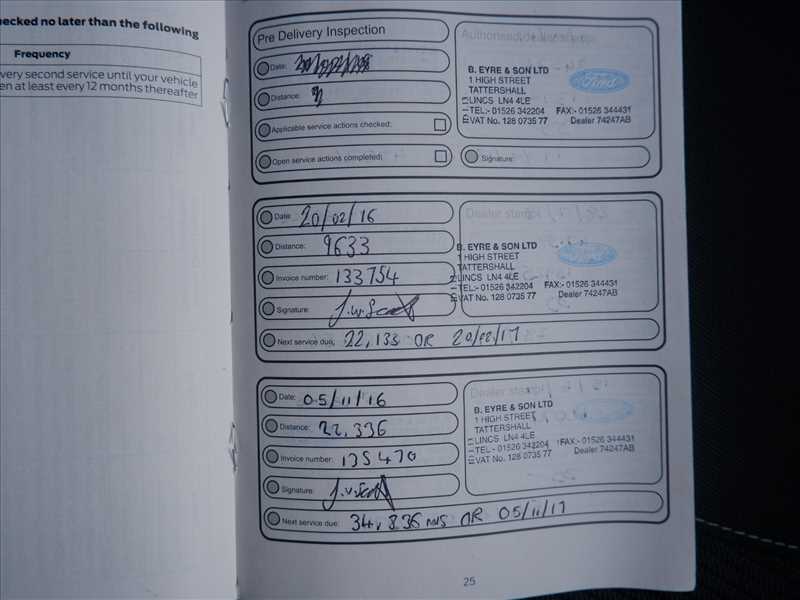 hecked no later than the following
Frequency
very second service until your vehicle
en at least every 12 months thereafter
Pre Delivery Inspection
Date:
Distance:
Applicable service actions checked:
Open service actions completed:
Authorised dealer stamp
B. EYRE & SON LTD
1 HIGH STREET
TATTERSHALL
LINCS LN4 4LE
TEL:- 01526 342204 FAX:- 01526 344431
VAT No. 128 0735 77 Dealer 74247AB
Ford
Signature:
Date: 20/02/16
Distance: 9633
Invoice number: 133754
Signature:
Next service due: 22,133 OR 20/02/17
Dealer stamp
B. EYRE & SON LTD
1 HIGH STREET
TATTERSHALL
LINCS LN4 4LE
TEL:- 01526 342204 FAX:- 01526 344431
VAT No. 128 0735 77 Dealer 74247AB
Ford
Date: 05/11/16
Distance: 22,336
Invoice number: 135470
Signature:
Next service due: 34,836 mls OR 05/11/17
Dealer stamp
B. EYRE & SON LTD
1 HIGH STREET
TATTERSHALL
LINCS LN4 4LE
TEL:- 01526 342204 FAX:- 01526 344431
VAT No. 128 0735 77 Dealer 74247AB
25